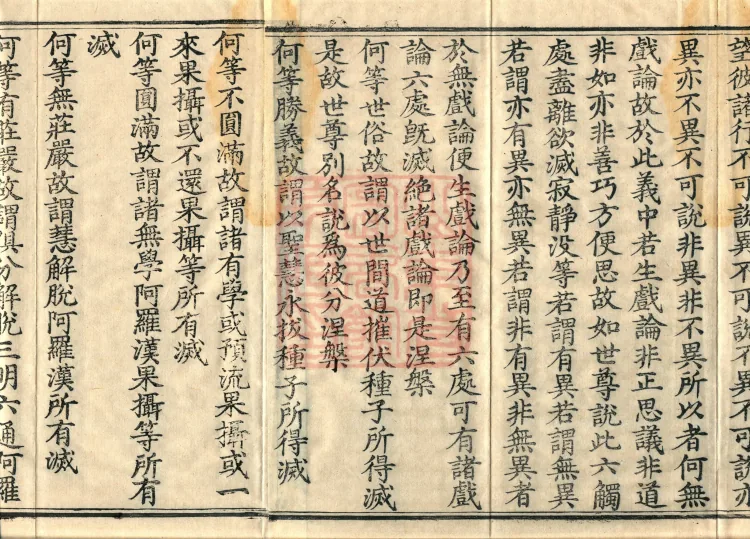 望彼諸行不可說異不可說不異不可說亦
異亦不異不可說非異非不異所以者何無
戲論故於此義中若生戲論非正思議非道
非如亦非善巧方便思故如世尊說此六觸
處盡離欲滅寂靜没等若謂有異若謂無異
若謂亦有異亦無異若謂非有異非無異者
於無戲論便生戲論乃至有六處可有諸戲
論六處旣滅絕諸戲論即是涅槃
何等世俗故謂以世間道摧伏種子所得滅
是故世尊別名說爲彼分涅槃
何等勝義故謂以聖慧永拔種子所得滅
何等不圓滿故謂諸有學或預流果攝或一
來果攝或不還果攝等所有滅
何等圓滿故謂諸無學阿羅漢果攝等所有
滅
何等無莊嚴故謂慧解脫阿羅漢所有滅
何等有莊嚴故謂俱分解脫三明六通阿羅